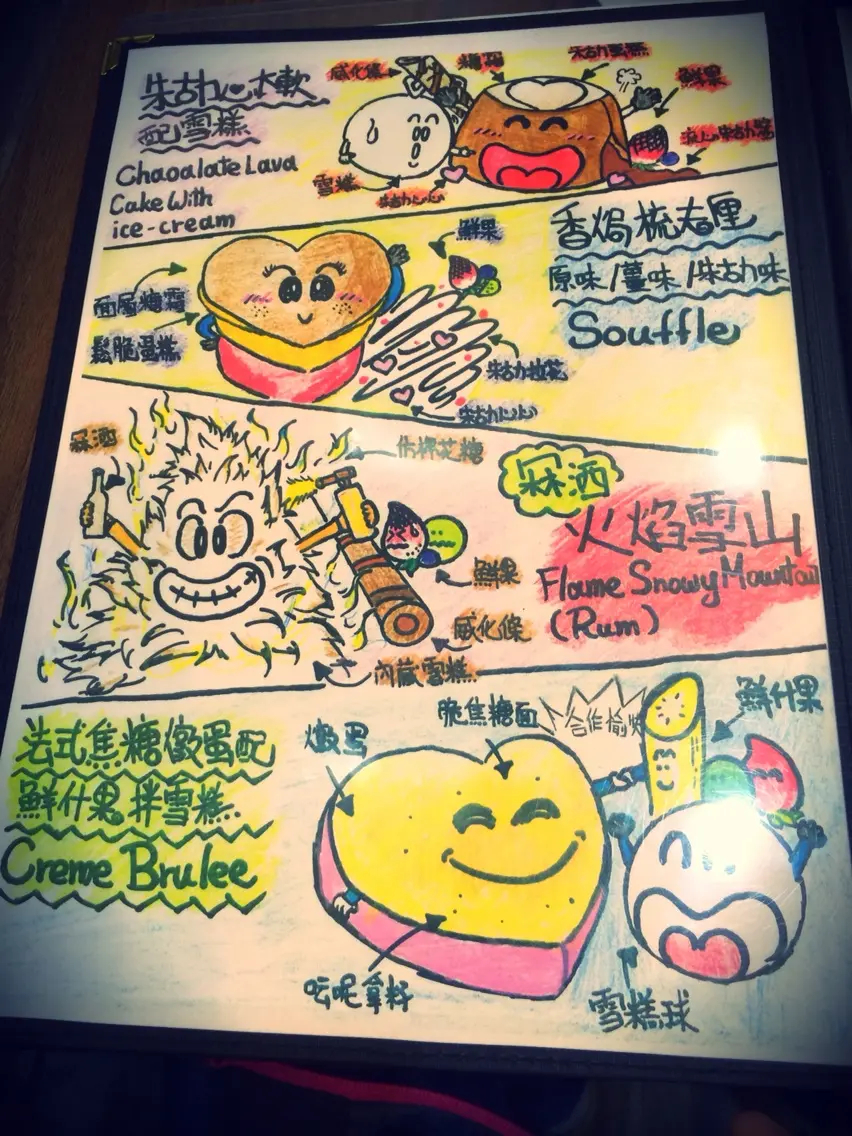 朱古力心太軟
配雪糕
Chaoalate Lava
Cake With
ice-cream
威化條
糖霜
朱古力蛋糕
鮮果
流心朱古力醬
雪糕
朱古力心心
香焗梳夫厘
原味/薑味/朱古力味
Souffle
鮮果
面層糖霜
鬆脆蛋糕
朱古力拉花
朱古力心心
冧酒
火焰雪山
Flame Snowy Mountain
(Rum)
冧酒
仿棉花糖
鮮果
威化條
內藏雪糕
法式焦糖燉蛋配
鮮什果拌雪糕
Creme Brulee
燉蛋
脆焦糖面
合作愉快
鮮什果
吰呢拿籽
雪糕球